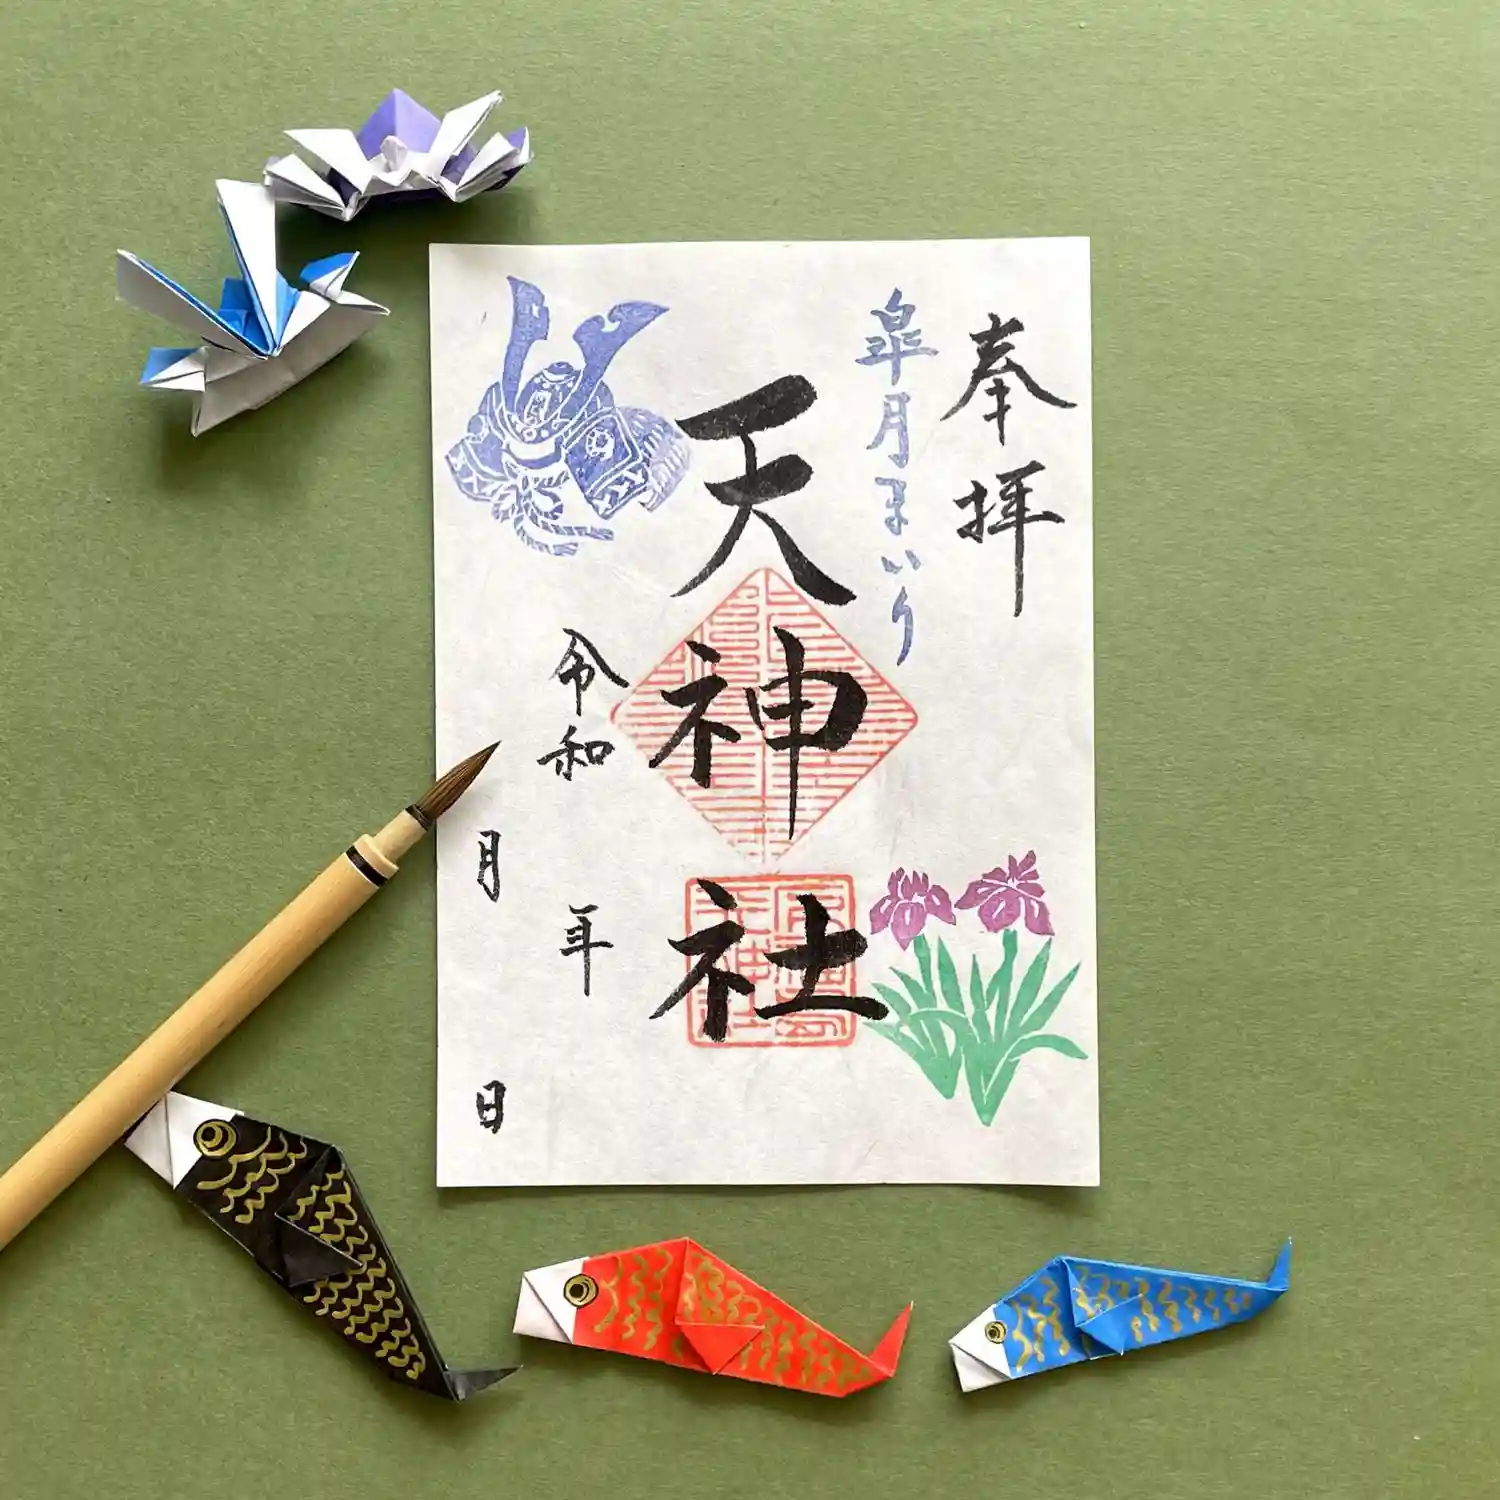 奉拝
皐月まいり
天神社
令和 年
月 日